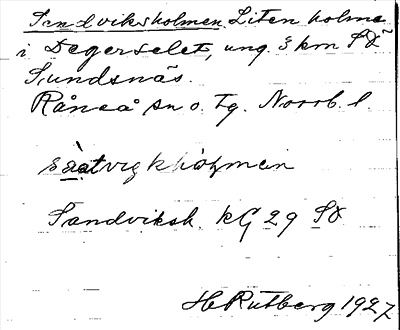 Sandviksholmen. Liten holme
i Degerselet, ung. 3 km SO
Sundsnäs.
Råneå sn o. tg. Norrb. l.
Sandviksh. kG 29 SO
H Rutberg 1927